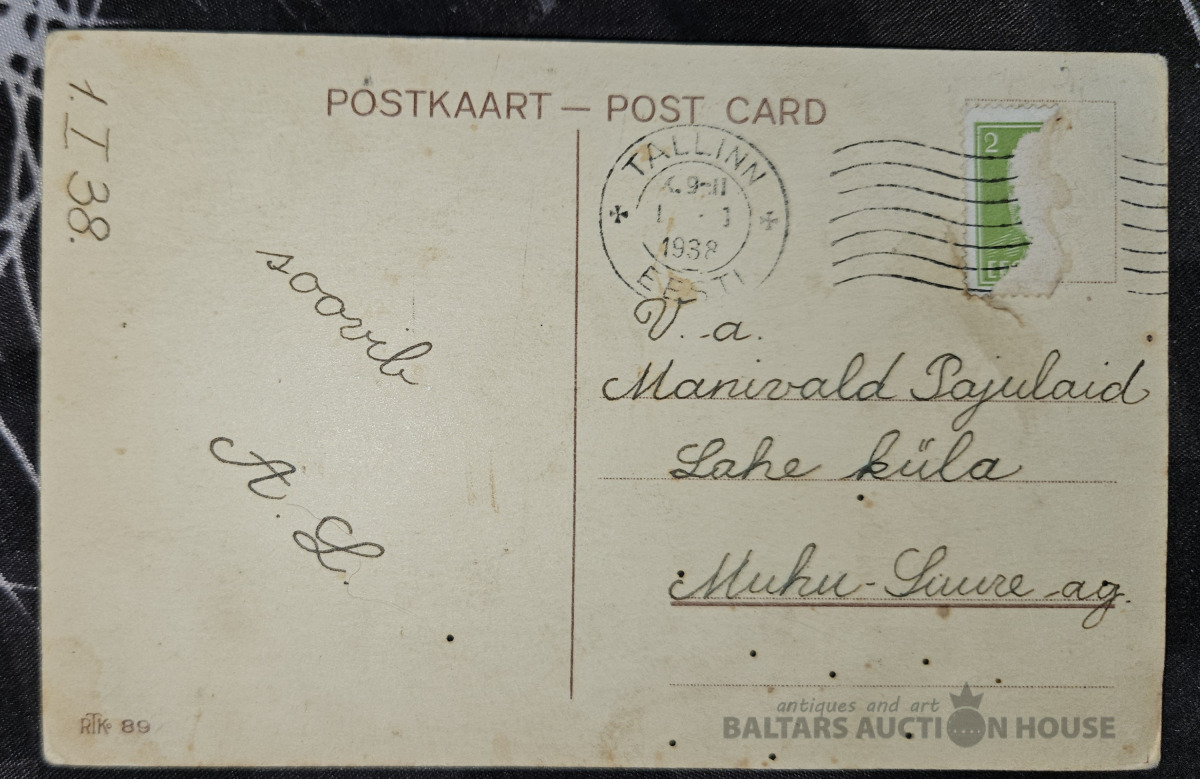 1. I 38.
POSTKAART — POST CARD
TALLINN
1938
EESTI
2
soovib
A. L.
V. a.
Manivald Pajulaid
Lahe küla
Muhu-Suure ag.
RTK 89
antiques and art
BALTARS AUCTION HOUSE